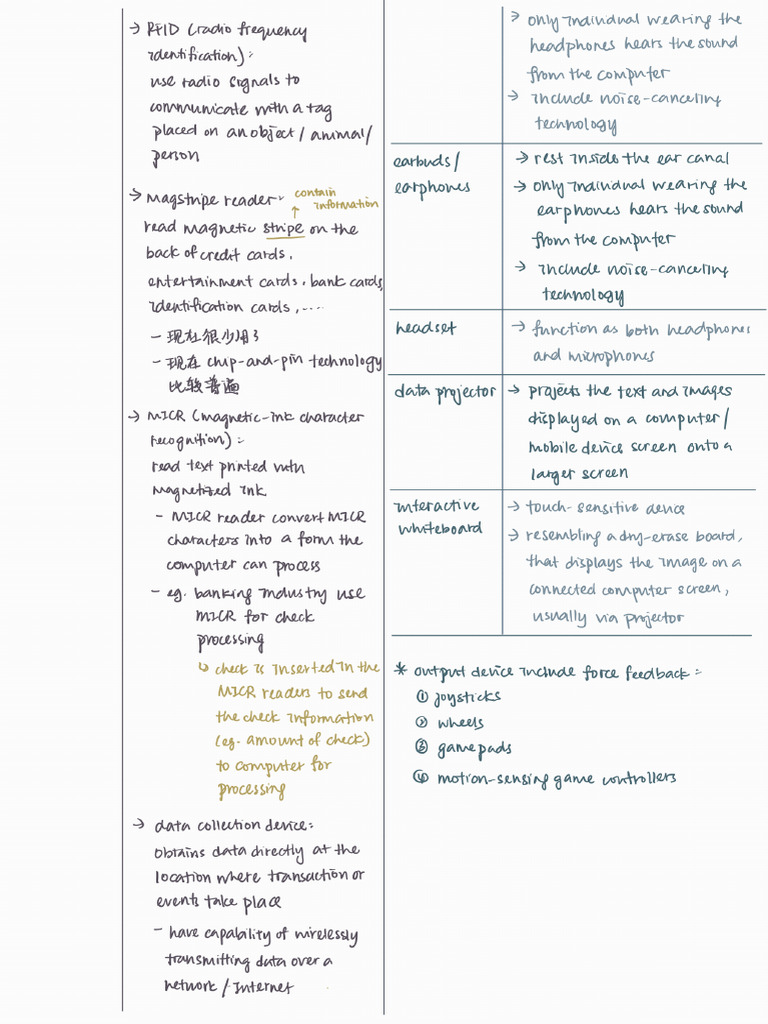 → RFID (radio frequency
identification):
use radio signals to
communicate with a tag
placed on an object / animal /
person
→ Magstripe reader:
contain
information
↑
read magnetic stripe on the
back of credit cards,
entertainment cards, bank cards,
identification cards, ....
- 现在很少用了
- 现在 chip-and-pin technology
比较普遍
→ MICR (magnetic-ink character
recognition):
read text printed with
magnetized ink
- MICR reader convert MICR
characters into a form the
computer can process
- eg. banking industry use
MICR for check
processing
↳ check is inserted in the
MICR readers to send
the check information
(eg. amount of check)
to computer for
processing
→ data collection device:
obtains data directly at the
location where transaction or
events take place
- have capability of wirelessly
transmitting data over a
network / Internet
→ only individual wearing the
headphones hears the sound
from the computer
→ include noise-canceling
technology
earbuds /
earphones
→ rest inside the ear canal
→ only individual wearing the
earphones hears the sound
from the computer
→ include noise-canceling
technology
headset
→ function as both headphones
and microphones
data projector
→ projects the text and images
displayed on a computer /
mobile device screen onto a
larger screen
interactive
whiteboard
→ touch-sensitive device
→ resembling a dry-erase board,
that displays the image on a
connected computer screen,
usually via projector
* output device include force feedback:
① joysticks
② wheels
③ gamepads
④ motion-sensing game controllers